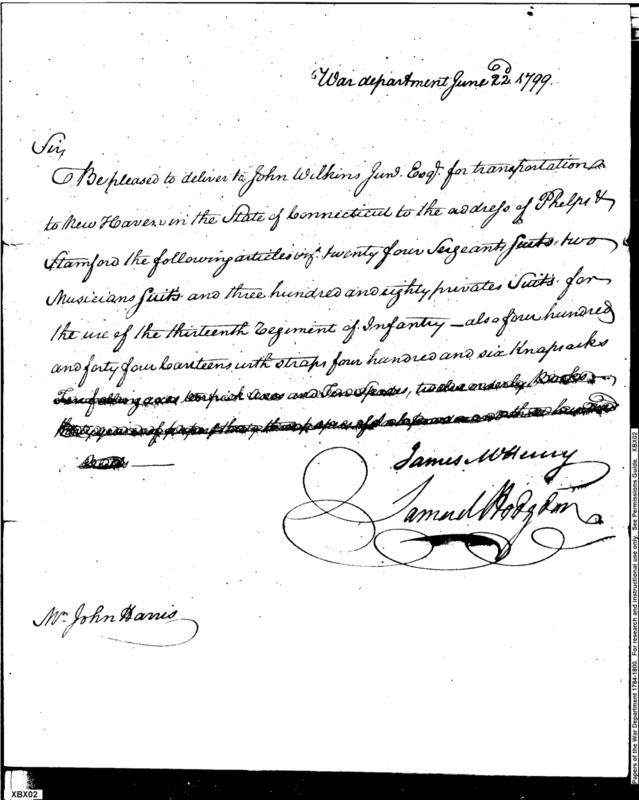 War department June 22d. 1799.
Sir,
Be pleased to deliver to John Wilkins Junr. Esqr. for transportation
to New Haven in the State of Connecticut to the address of Phelps &
Stamford the following articles vizt. twenty four Sergeants Suits, two
Musicians Suits and three hundred and eighty privates Suits for
the use of the thirteenth Regiment of Infantry — also four hundred
and forty four Canteens with straps four hundred and six Knapsacks
Ten falling axes ten pick axes and Ten Spades, twelve orderly Books
James McHenry
Samuel Hodgdon
Mr. John Harris
Papers of the War Department 1784-1800. For research and instructional use only. See Permissions Guide. XBX02
XBX02